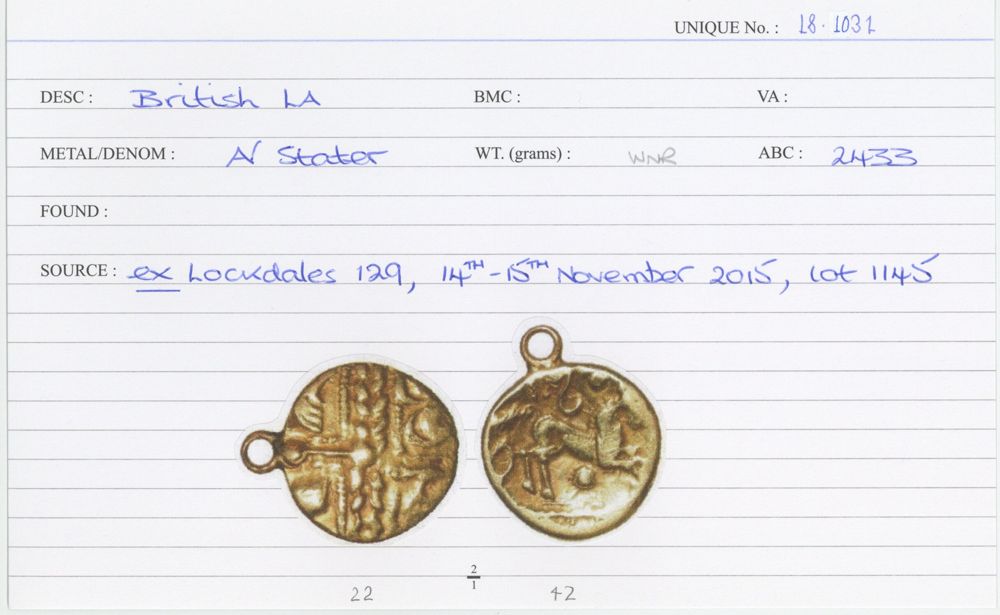 UNIQUE No. : 18.1031
DESC : British LA BMC : VA :
METAL/DENOM : AV Stater WT. (grams) : WNR ABC : 2433
FOUND :
SOURCE : ex Lockdales 129, 14TH-15TH November 2015, lot 1145
2
1
22 42